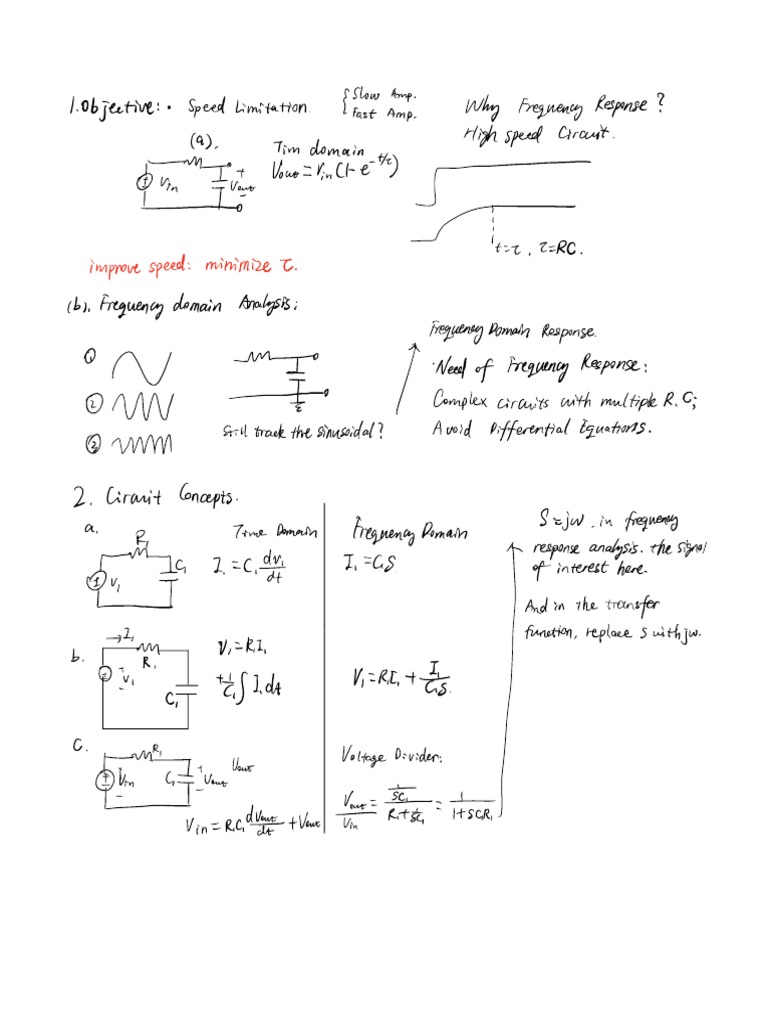 1. Objective: • Speed Limitation. { Slow Amp.
Fast Amp.
Why Frequency Response?
High speed Circuit.
(a).
Tim domain
Vout = Vin (1-e^{-t/τ})
Vin
+
Vout
-
t=τ, τ=RC.
improve speed: minimize τ.
(b). Frequency domain Analysis:
①
②
③
Still track the sinusoidal?
Frequency Domain Response.
·Need of Frequency Response:
Complex circuits with multiple R.C;
Avoid Differential Equations.
2. Circuit Concepts.
Time Domain
Frequency Domain
a.
R1
C1
V1
I1 = C1 dv1/dt
I1 = C1S
S=jw, in frequency
response analysis. the signal
of interest here.
And in the transfer
function, replace S with jw.
b.
→I1
R1
+
V1
-
C1
V1 = R1I1
+ 1/C1 ∫ I1dt
V1 = R1I1 + I1/C1S.
c.
R1
+
Vin
-
C1
+
Vout
-
Vout
Vin = R1C1 dVout/dt + Vout
Voltage Divider:
Vout/Vin = (1/SC1)/(R1+1/SC1) = 1/(1+SC1R1)